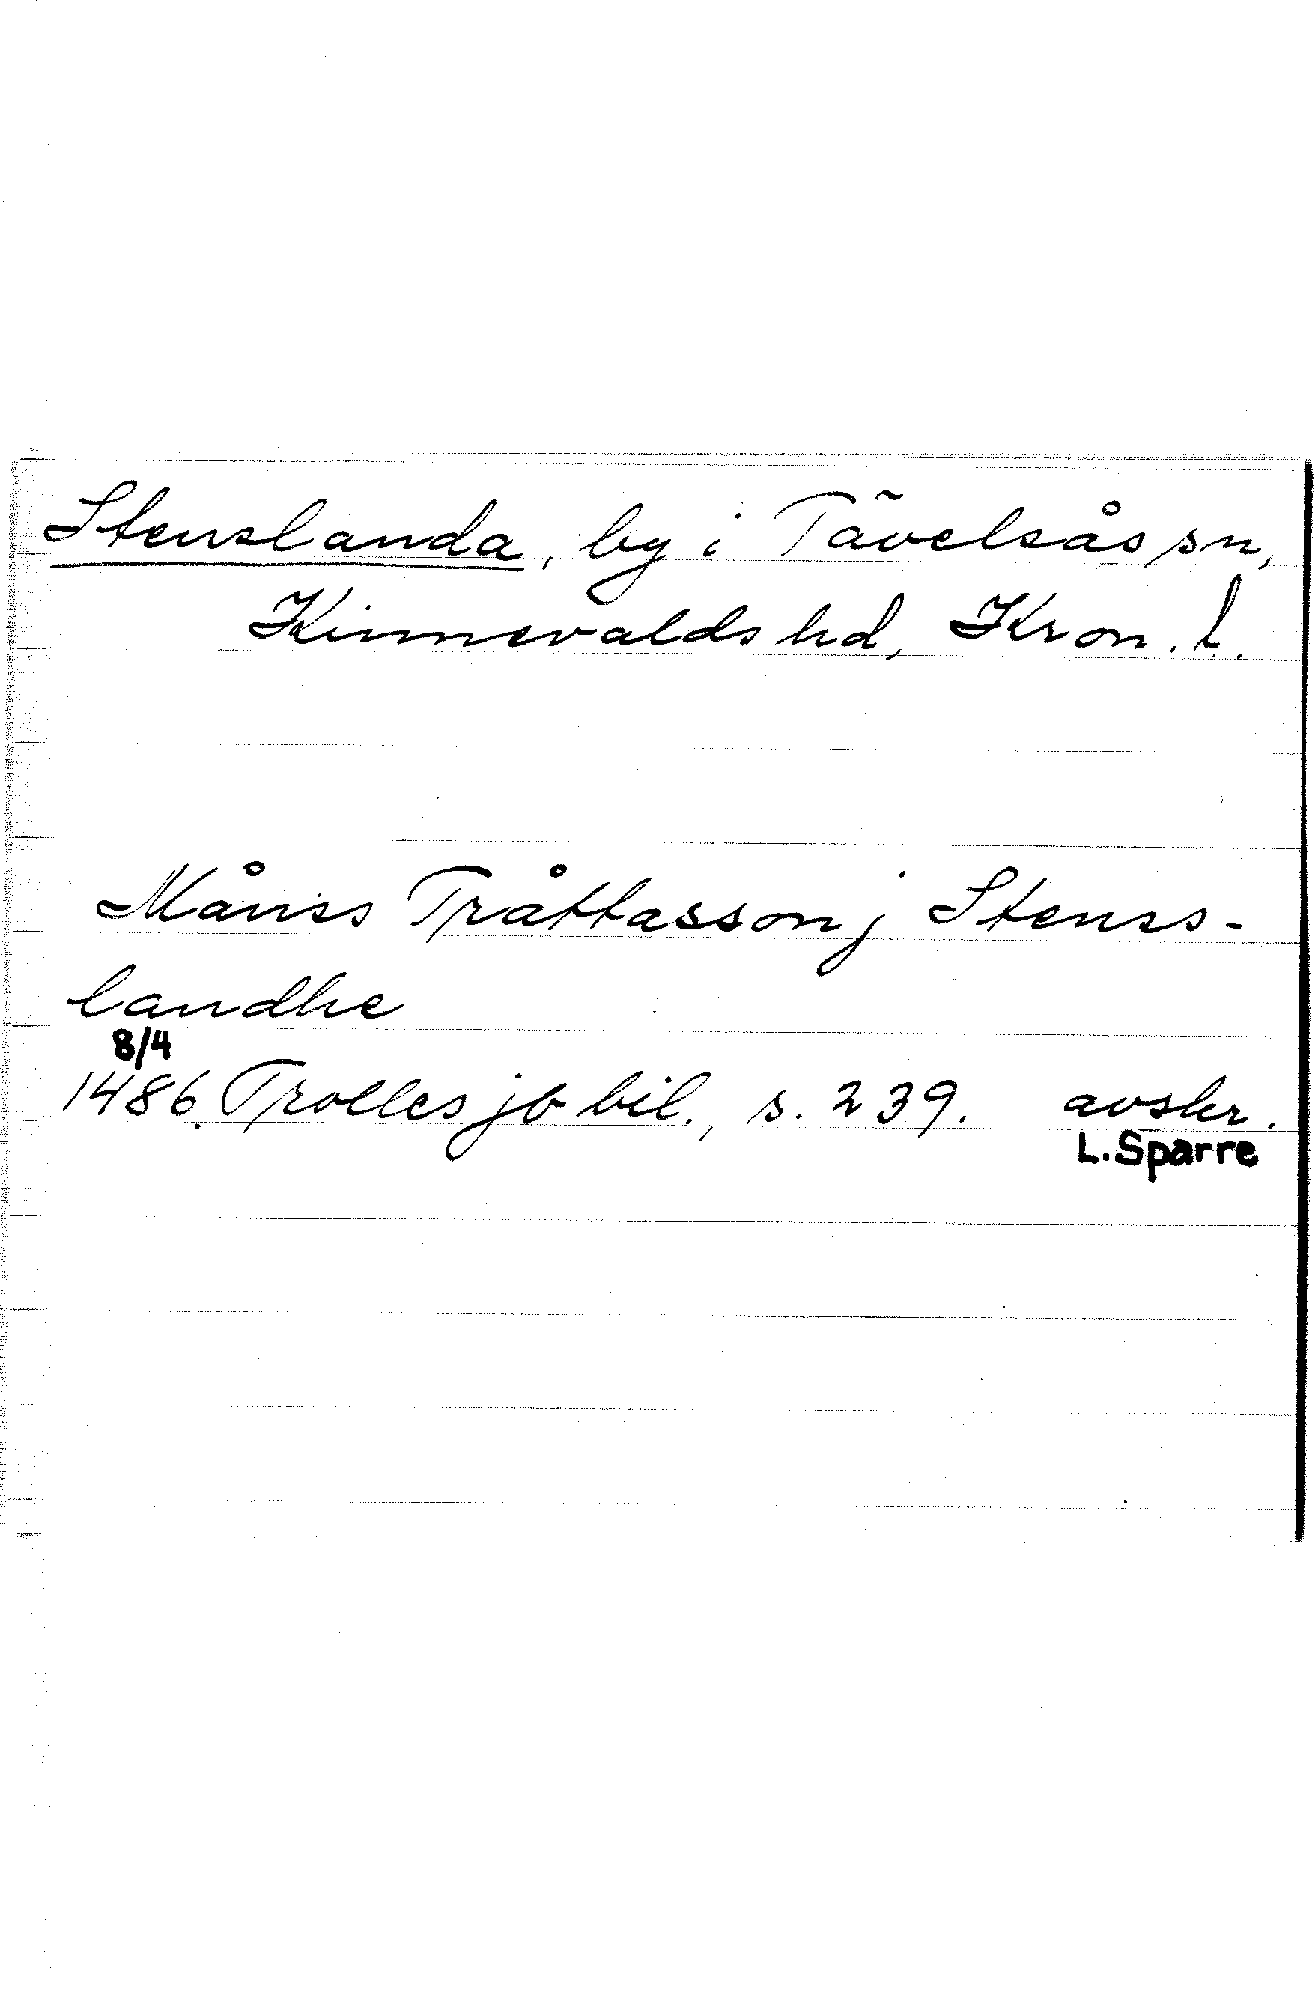 Stenslanda, by i Tävelsås sn,
Kinnevalds hd, Kron. l.
Månss Tråttasson j Stenss-
landhe
8/4
1486. Trolles jb bil., s. 239. avskr.
L. Sparre